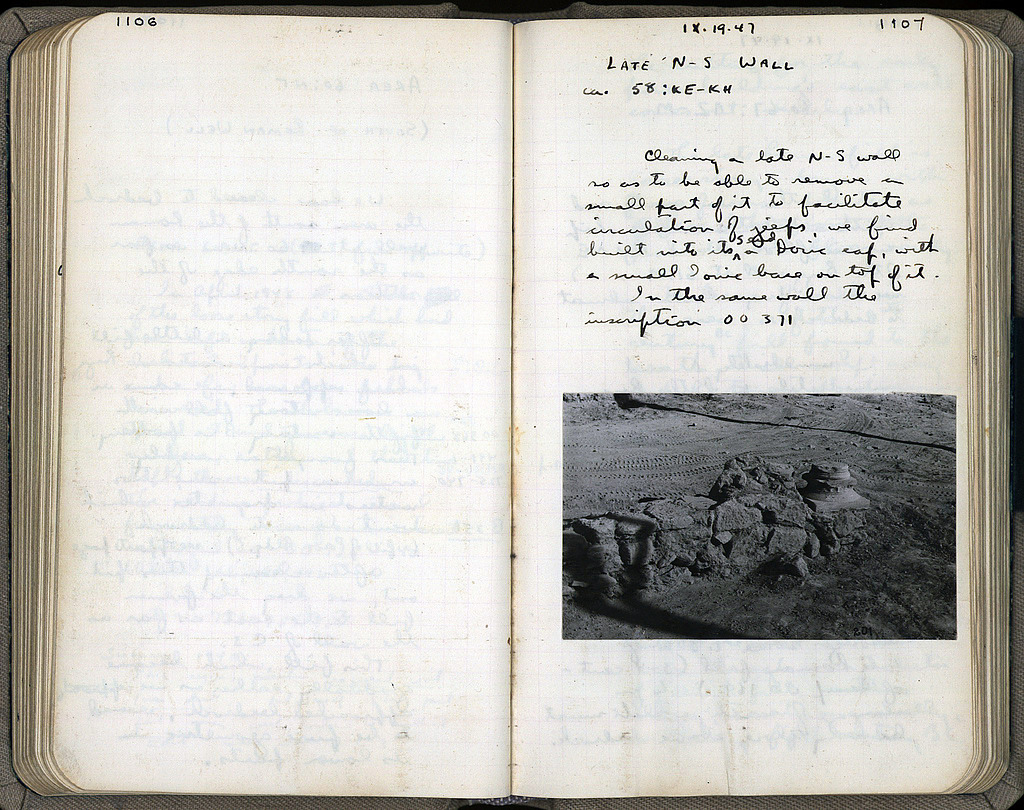 1106
IX.19.47
1107
LATE N-S WALL
ca. 58:KE-KH
Cleaning a late N-S wall
so as to be able to remove a
small part of it to facilitate
circulation of jeeps, we find
built into its a Doric cap, with
a small Ionic base on top of it.
In the same wall the
inscription OO 371
201